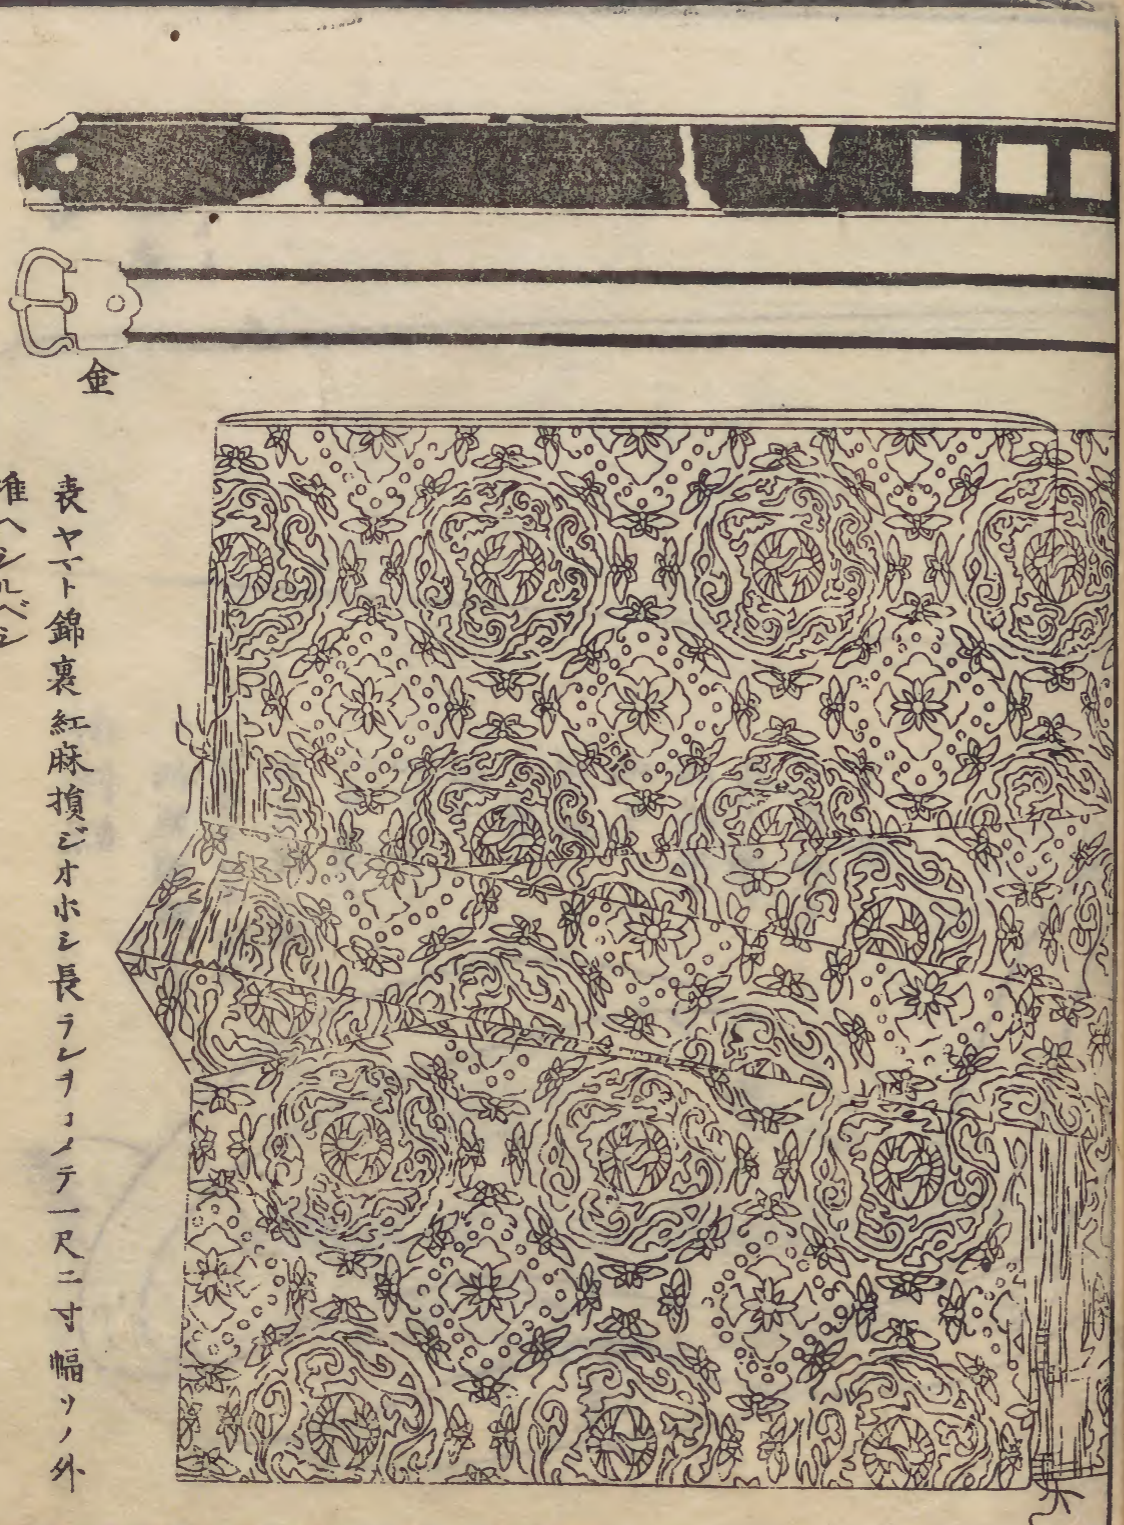 金
表ヤマト錦裏紅麻損ジオホシ長ラシヲコメテ一尺二寸幅ソノ外
准ヘシルベシ